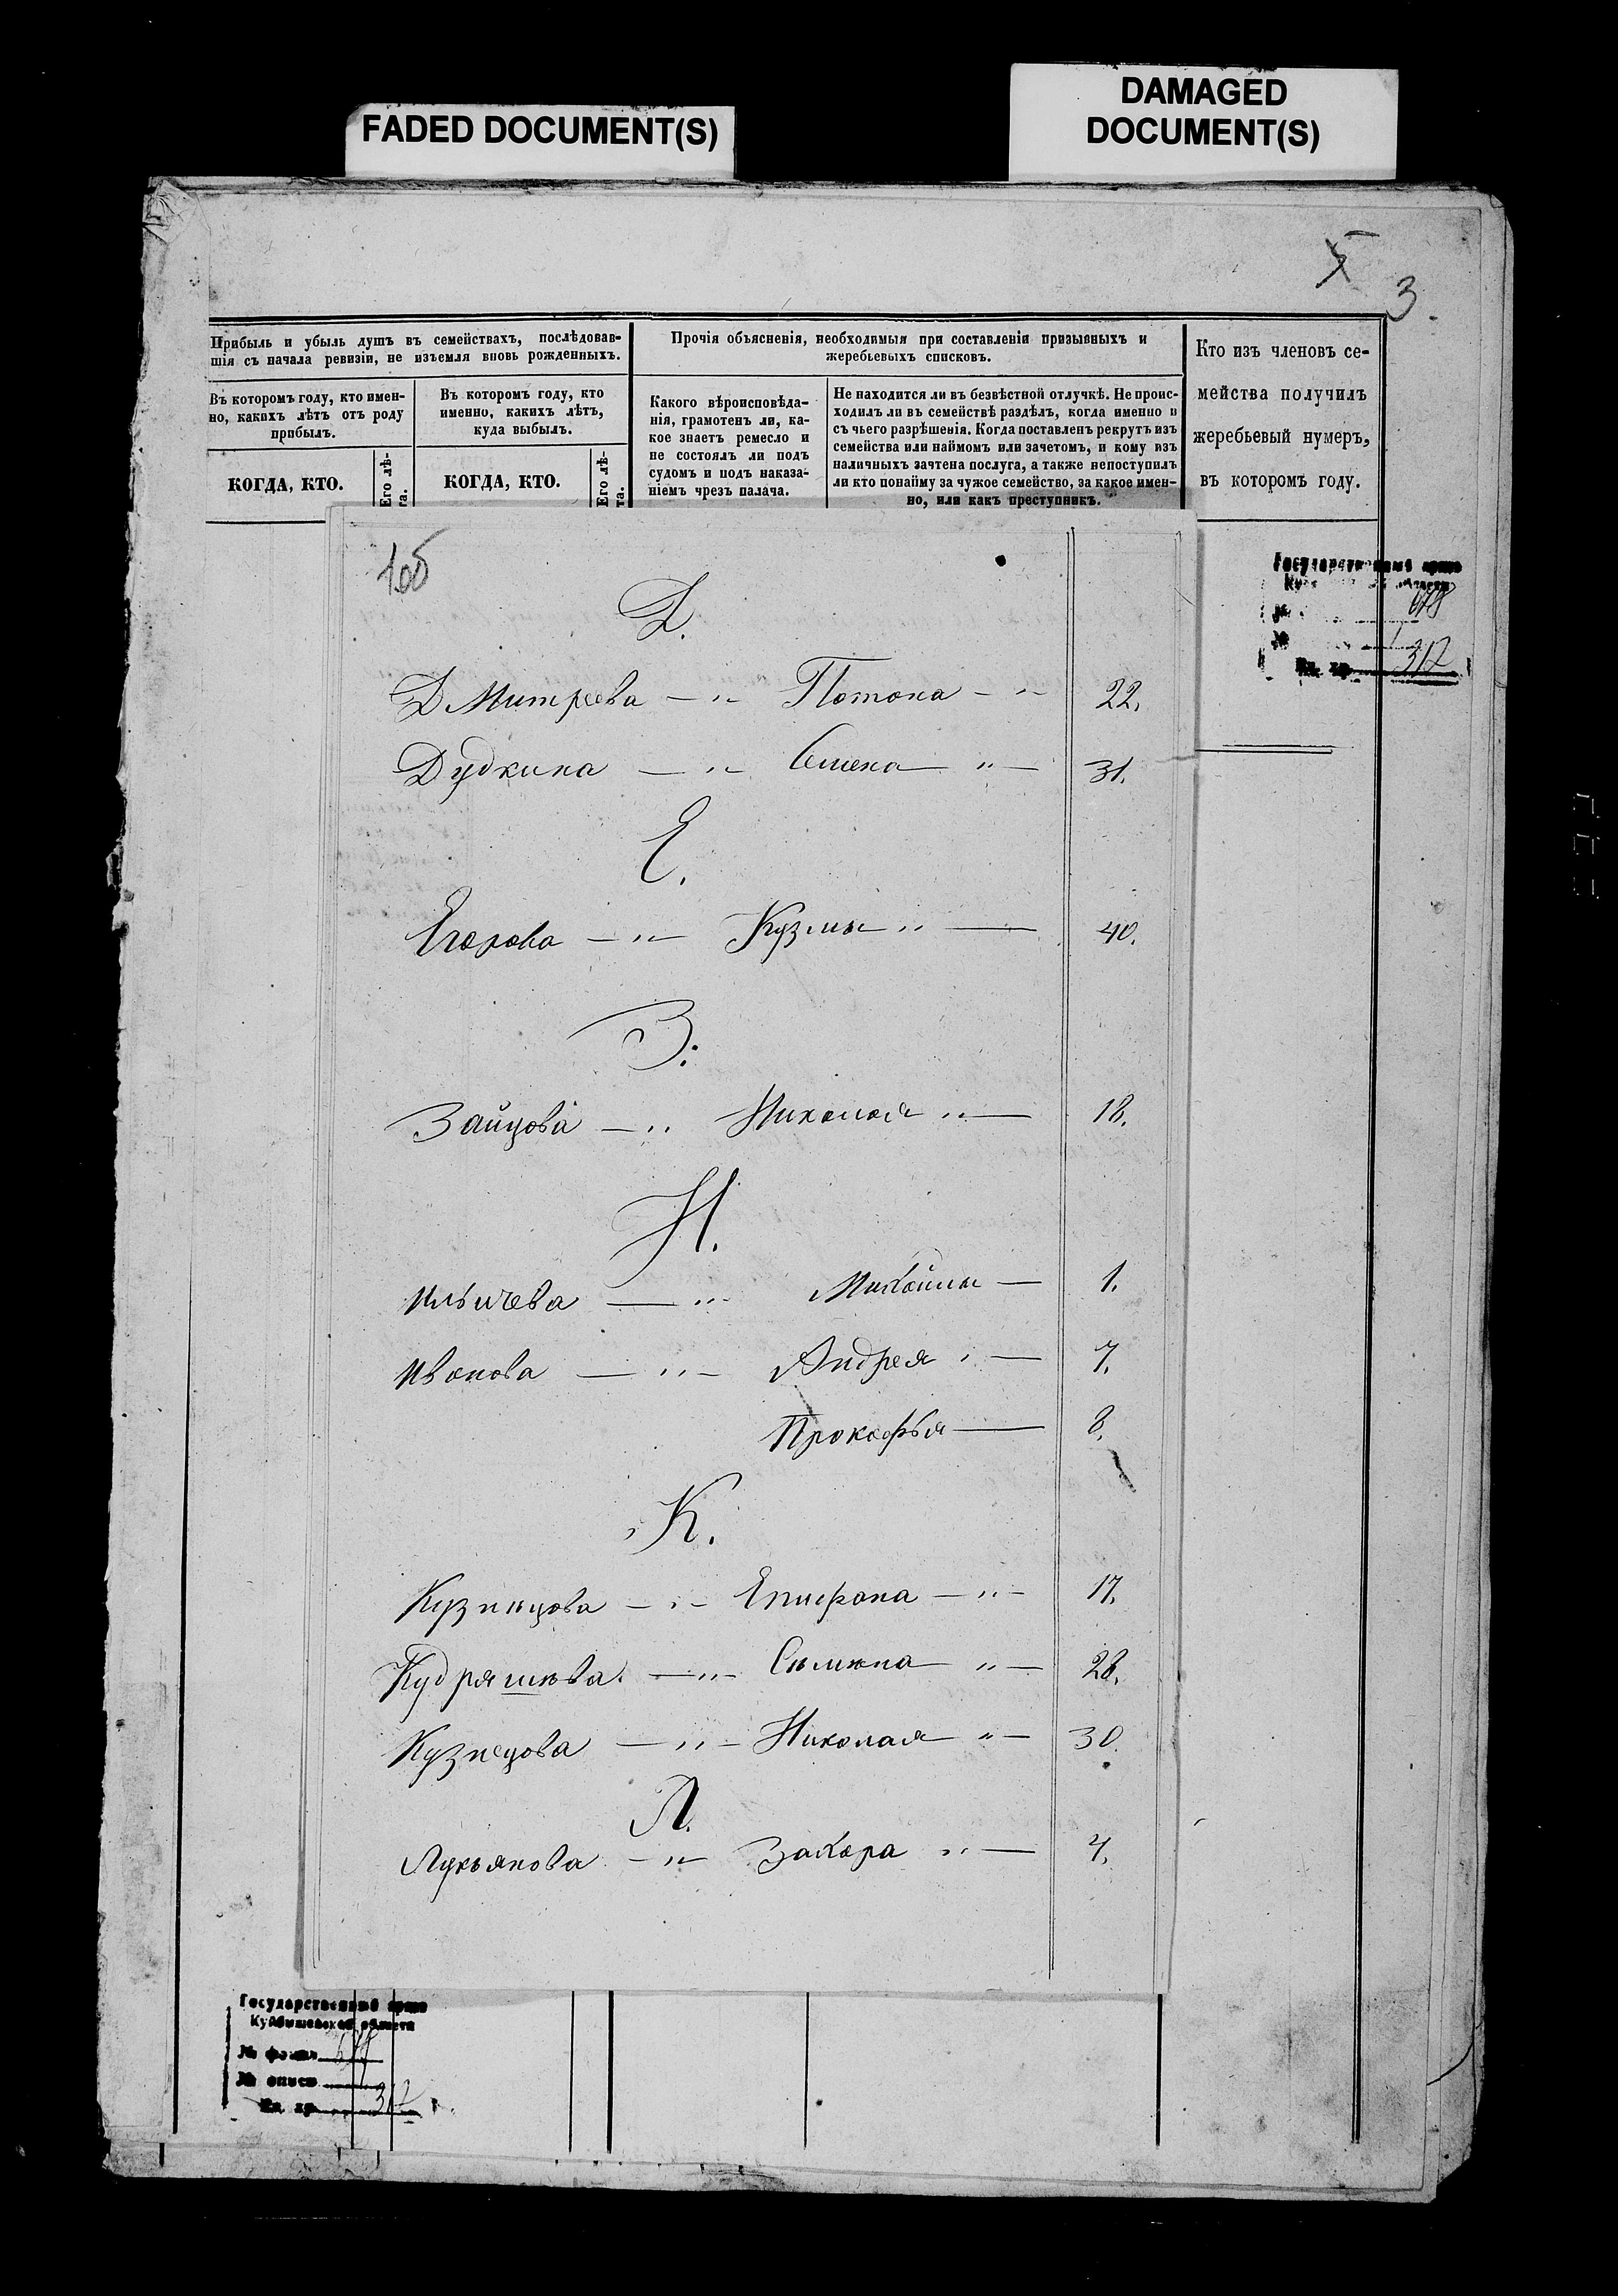 FADED DOCUMENT(S)
DAMAGED
DOCUMENT(S)
5
3.
Прибыль и убыль душъ въ семействахъ, послѣдовав-
шія съ начала ревизіи, не изъемля вновь рожденныхъ.
Въ которомъ году, кто имен-
но, какихъ лѣтъ отъ роду
прибылъ.
КОГДА, КТО.
Его лѣ-
та.
Въ которомъ году, кто
именно, какихъ лѣтъ,
куда выбылъ.
КОГДА, КТО.
Его лѣ-
та.
Прочія объясненія, необходимыя при составленіи призывныхъ и
жеребьевыхъ списковъ.
Какого вѣроисповѣда-
нія, грамотенъ ли, ка-
кое знаетъ ремесло и
не состоялъ ли подъ
судомъ и подъ наказа-
ніемъ чрезъ палача.
Не находится ли въ безвѣстной отлучкѣ. Не проис-
ходилъ ли въ семействѣ раздѣлъ, когда именно и
съ чьего разрѣшенія. Когда поставленъ рекрутъ изъ
семейства или наймомъ или зачетомъ, и кому изъ
наличныхъ зачтена послуга, а также непоступилъ
ли кто понайму за чужое семейство, за какое имен-
но, или какъ преступникъ.
Кто изъ членовъ се-
мейства получилъ
жеребьевый нумеръ,
въ которомъ году.
Д.
Дмитреева — „ — Потопа — „ — 22.
Дудкина — „ — Семена „ — 31.
Е.
Егорова — „ — Кузмы „ — 40.
З.
Зайцова — „ Николая „ — 18.
И.
Ильичева — „ Михайлы — 1.
Иванова — „ — Андрея „ — 7.
Прокофья — 8.
К.
Кузнѣцова — „ — Епифана — „ — 17.
Кудряшева. — „ — Сѣмѣна „ — 28.
Кузнецова — „ — Николая „ — 30.
Л.
Лукьянова — „ — Захара „ — 4.
Государственный архив
317
Государственный архив
Куйбышевской области
№ фонда
№ описи
Ед. хр. 317